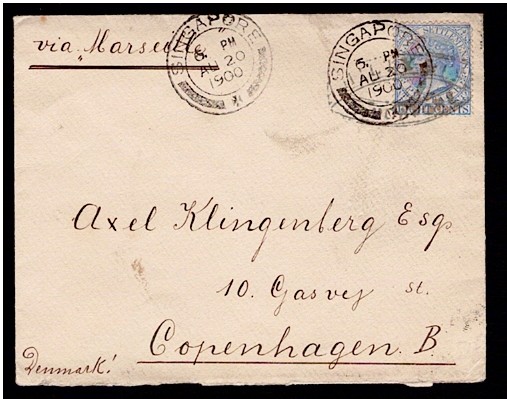 via "Marsei
SINGAPORE
5. PM
AU 20
1900
SINGAPORE
5. PM
AU 20
1900
Axel Klingenberg Esq.
10. Gasvej st.
Copenhagen. B.
Denmark!